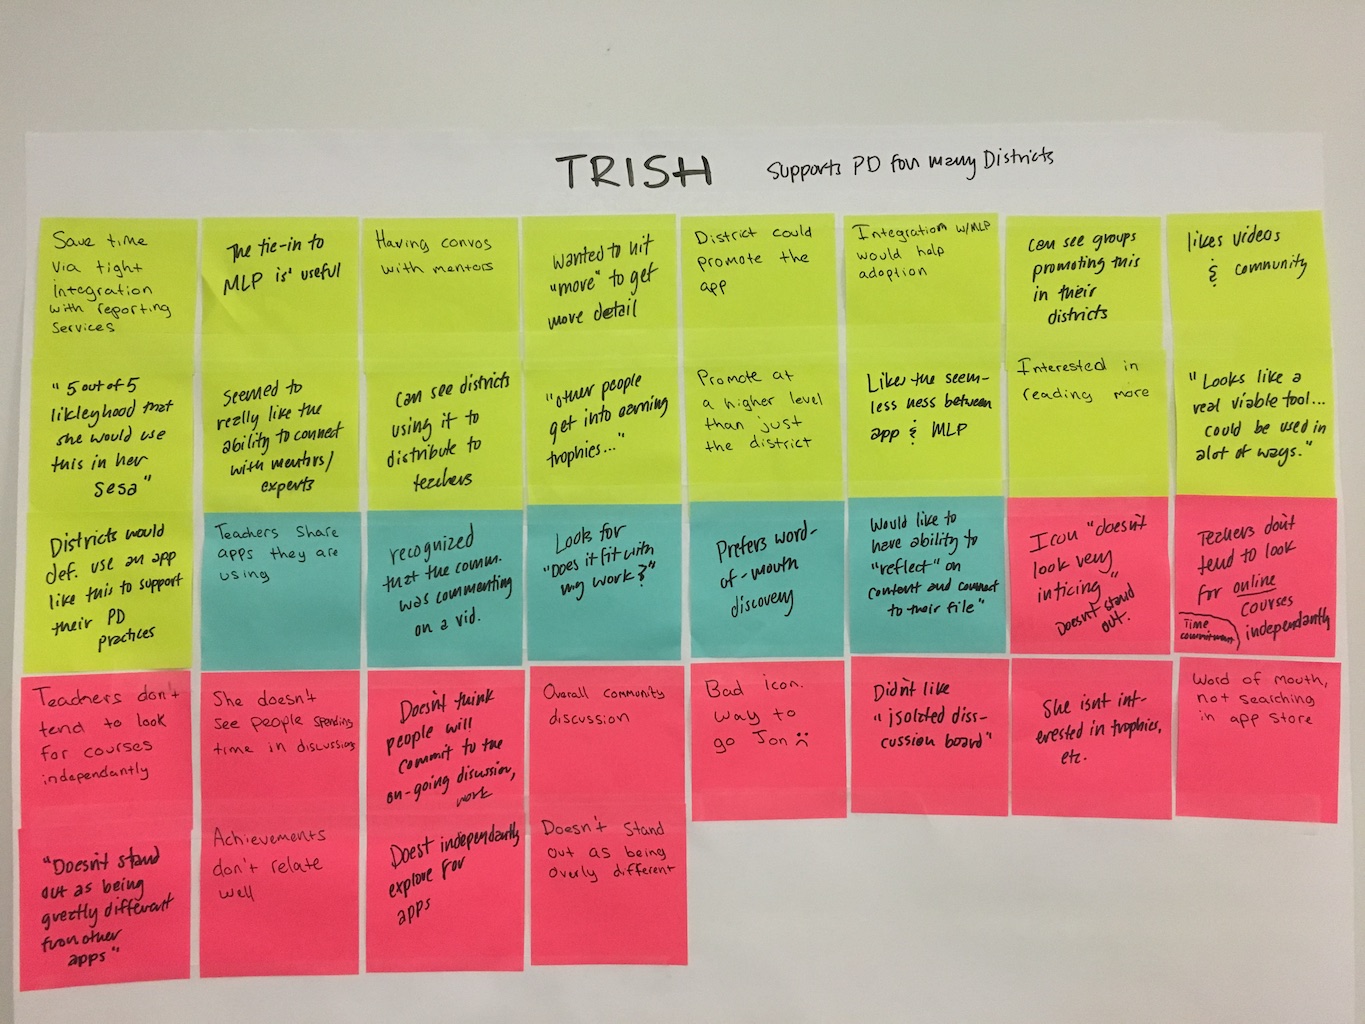 TRISH
Supports PD for many Districts
Save time
via tight
Integration
with reporting
Services
The tie-in to
MLP is useful
Having convos
with mentors
Wanted to hit
"more" to get
more detail
District could
promote the
app
Integration w/MLP
would help
adoption
can see groups
promoting this
in their
districts
likes videos
& community
"5 out of 5
likleyhood that
she would use
this in her
SESA"
Seemed to
really like the
ability to connect
with mentors/
experts
Can see districts
using it to
distribute to
teachers
"other people
get into earning
trophies..."
Promote at
a higher level
than just
the district
Likes the seem-
less ness between
app & MLP
Interested in
reading more
"Looks like a
real viable tool...
could be used in
alot of ways."
Districts would
def. use an app
like this to support
their PD
practices
Teachers share
apps they are
using
recognized
that the comm.
was commenting
on a vid.
Looks for
"Does it fit with
my work?"
Prefers word-
of-mouth
discovery
Would like to
have ability to
"reflect" on
content and connect
to their file"
Icon "doesn't
look very
inticing"
Doesn't stand
out.
Teachers don't
tend to look
for online
courses
independantly
Time
commitment
Teachers don't
tend to look
for courses
independantly
She doesn't
see people spending
time in discussions
Doesn't think
people will
commit to the
on-going disussion,
work
Overall community
discussion
Bad icon.
Way to
go Jon :(
Didn't like
"isolated diss-
cussion board"
She isnt int-
erested in trophies,
etc.
Word of mouth,
not searching
in app store
"Doesn't stand
out as being
greatly different
from other
apps"
Achievements
don't relate
well
Doest independantly
explore for
apps
Doesn't stand
out as being
overly different